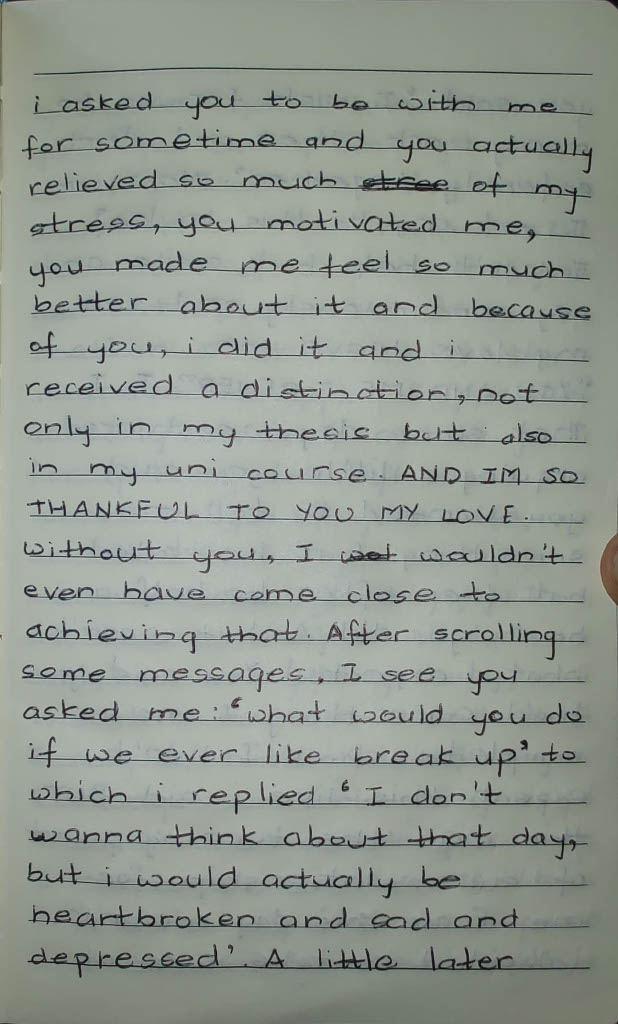 i asked you to be with me
for sometime and you actually
relieved so much stree of my
stress, you motivated me,
you made me feel so much
better about it and because
of you, i did it and i
received a distinction, not
only in my thesis but also
in my uni course. AND IM SO
THANKFUL TO YOU MY LOVE.
without you, I wot wouldn't
even have come close to
achieving that. After scrolling
some messages, I see you
asked me: 'what would you do
if we ever like break up' to
which i replied ' I don't
wanna think about that day,
but i would actually be
heartbroken and sad and
depressed'. A little later